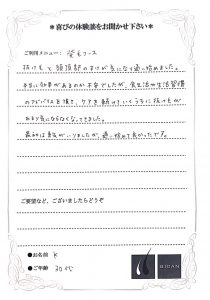 *喜びの体験談をお聞かせ下さい*
ご利用メニュー: 育毛コース
抜け毛と頭頂部のすけが気になり通い始めました。
本当に効果があるのか不安でしたが、食生活や生活習慣
のアドバイスを頂き、ケアを続けていくうちに抜け毛が
あまり気にならなくなってきました。
最初は勇気がいりましたが、通い始めて良かったです。
ご要望など、ございましたらどうぞ
●お名前 K
●ご年齢 30代
BICAN